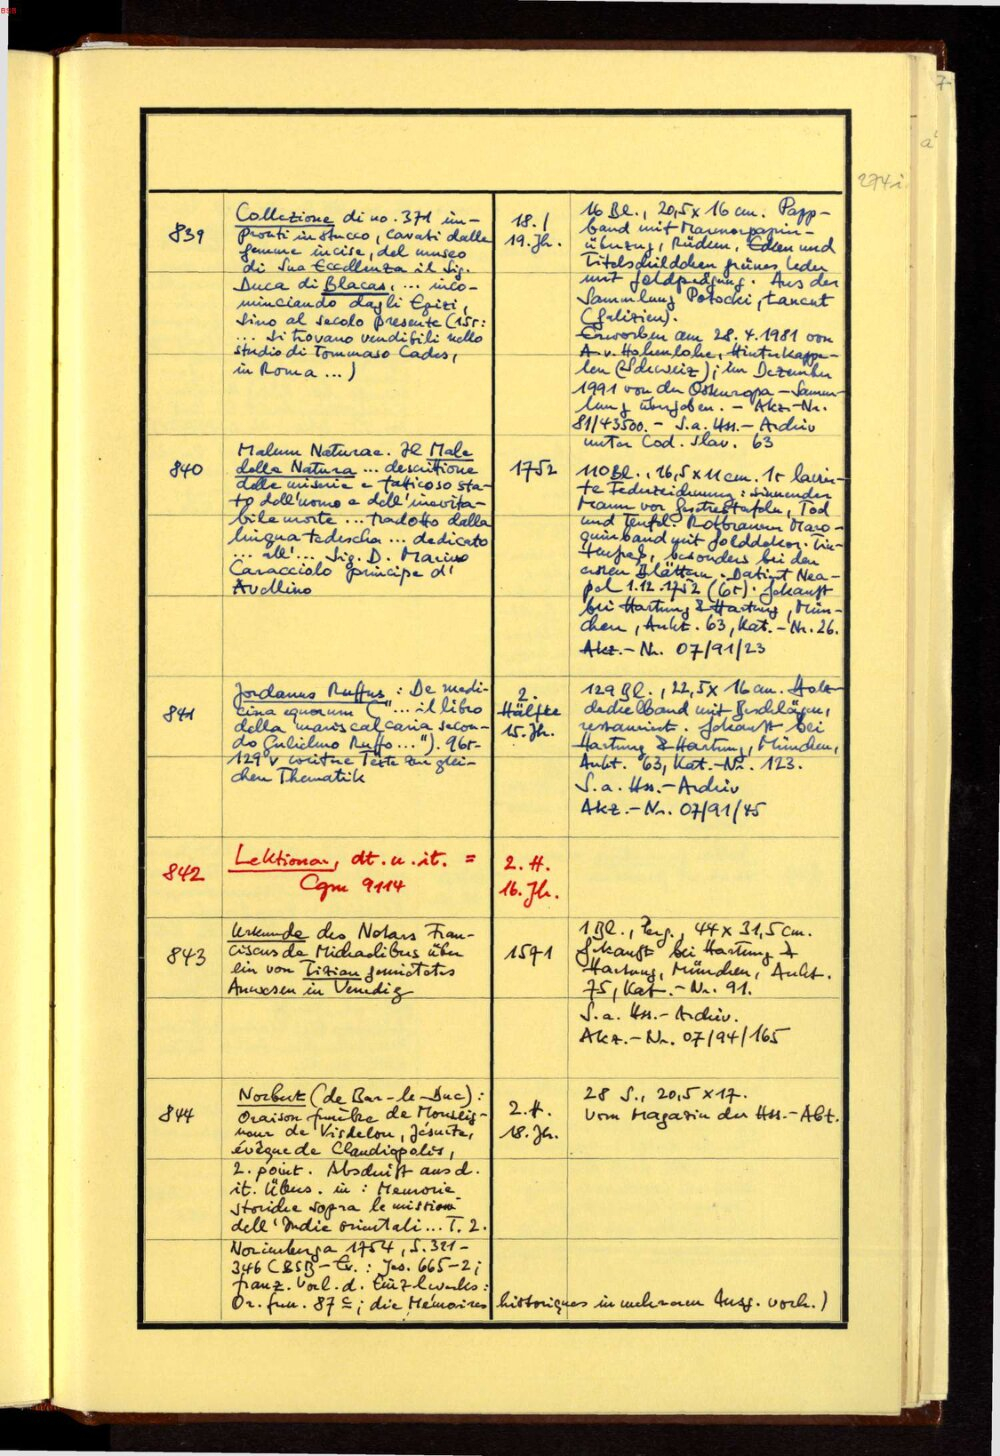 BSB
7
a
274i
839
Collezione di no. 371 im-
pronti in stucco, cavati dalle
gemme incise, del museo
di Sua Eccellenza il Sig.
Duca di Blacas, ... inco-
minciando dagli Egizi,
sino al secolo presente (15r:
... si trovano vendibili nello
studio di Tommaso Cades,
in Roma ...)
18./
19. Jh.
16 Bl., 20,5 x 16 cm. Papp-
band mit Marmorpapier-
überzug, Rücken, Ecken und
Titelschildchen grünes Leder
mit Goldprägung. Aus der
Sammlung Potocki, Lancut
(Galizien).
Erworben am 28.4.1981 von
A. v. Hohenlohe, Hinterkappe-
len (Schweiz); im Dezember
1991 von der Osteuropa-Samm-
lung übergeben. - Akz.-Nr.
81/43500. - S.a. Hss.-Archiv
unter Cod. slav. 63
840
Malum Naturae. Il Male
della Natura ... descrittione
delle miserie e fatticoso sta-
to dell'uomo e dell'inevita-
bile morte ... tradotto dalla
lingua tedescha ... dedicato
... all'... Sig. D. Marino
Caracciolo principe d'
Avellino
1752
110 Bl., 16,5 x 11 cm. 1r lavier-
te Federzeichnung: sinnender
Mann vor Gesetzestafeln, Tod
und Teufel. Rotbrauner Maro-
quinband mit Golddekor. Tin-
tenfraß, besonders bei den
ersten Blättern. Datiert Nea-
pel 1.12.1752 (6r). Gekauft
bei Hartung & Hartung, Mün-
chen, Aukt. 63, Kat.-Nr. 26.
Akz.-Nr. 07/91/23
841
Jordanus Ruffus: De medi-
cina equorum ("... il libro
della mariscalcaria secon-
do Gulielmo Ruffo..."). 96r-
129v weitere Texte zur glei-
chen Thematik
2.
Hälfte
15. Jh.
129 Bl., 22,5 x 16 cm. Holz-
deckelband mit Beschlägen,
restauriert. Gekauft bei
Hartung & Hartung, München,
Aukt. 63, Kat.-Nr. 123.
S.a. Hss.-Archiv
Akz.-Nr. 07/91/45
842
Lektionar, dt. u. it. =
Cgm 9114
2. H.
16. Jh.
843
Urkunde des Notars Fran-
ciscus de Michaelibus über
ein von Tizian gemietetes
Anwesen in Venedig
1571
1 Bl., Perg., 44 x 31,5 cm.
Gekauft bei Hartung &
Hartung, München, Aukt.
75, Kat.-Nr. 91.
S.a. Hss.-Archiv.
Akz.-Nr. 07/94/165
844
Norbert (de Bar-le-Duc):
Oraison funèbre de Monseig-
neur de Visdelou, Jésuite,
évêque de Claudiopolis,
2. point. Abschrift aus d.
it. Übers. in: Memorie
storiche sopra le missioni
dell'Indie orientali... T. 2.
Norimberga 1754, S. 321-
346 (BSB-Ex.: Jes. 665-2;
franz. Vorl. d. Einzelwerks:
Or. fun. 87 c; die Mémoires historiques in mehreren Ausg. vorh.)
2. H.
18. Jh.
28 S., 20,5 x 17.
Vom Magazin der Hss.-Abt.